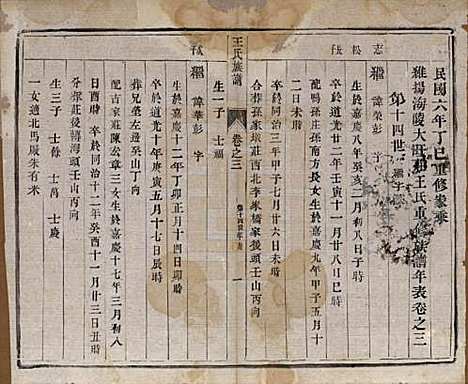 民國六年丁巳重修家乘
維揚海陵大汪頭王氏重修族譜年表卷之三
第十四世 繼字
志 松 成
繼 諱榮彭 字
生於嘉慶八年癸亥三月初八日申時
卒於道光二十二年壬寅十一月廿八日酉時
配鴨孫莊孫南方長女生於嘉慶九年甲子五月十
二日未時
卒於同治三年甲子七月廿六日未時
合葬孫家垜莊西北李家橋家後頭壬山丙向
生一子 士福
王氏族譜
卷之三
一
成 繼 諱華彭 字
生於嘉慶十二年丁卯正月十四日卯時
卒於道光十年庚寅五月十七日辰時
葬兄榮左邊癸山丁向
配吉家莊陳公三女生於嘉慶十七年三月初八
日酉時 卒於同治十二年癸酉十一月廿三日丑時
分葬莊後轉海頭壬山丙向
生三子 士餘 士萬 士慶
一女適北馬厰朱有米